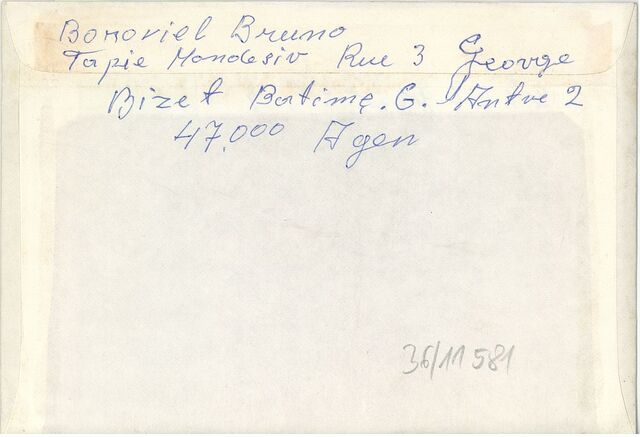 Bonoviel Bruno
Tapie Mondesiv Rue 3 George
Bizet Batime. G. Antre 2
47.000 Agen
36/11 581